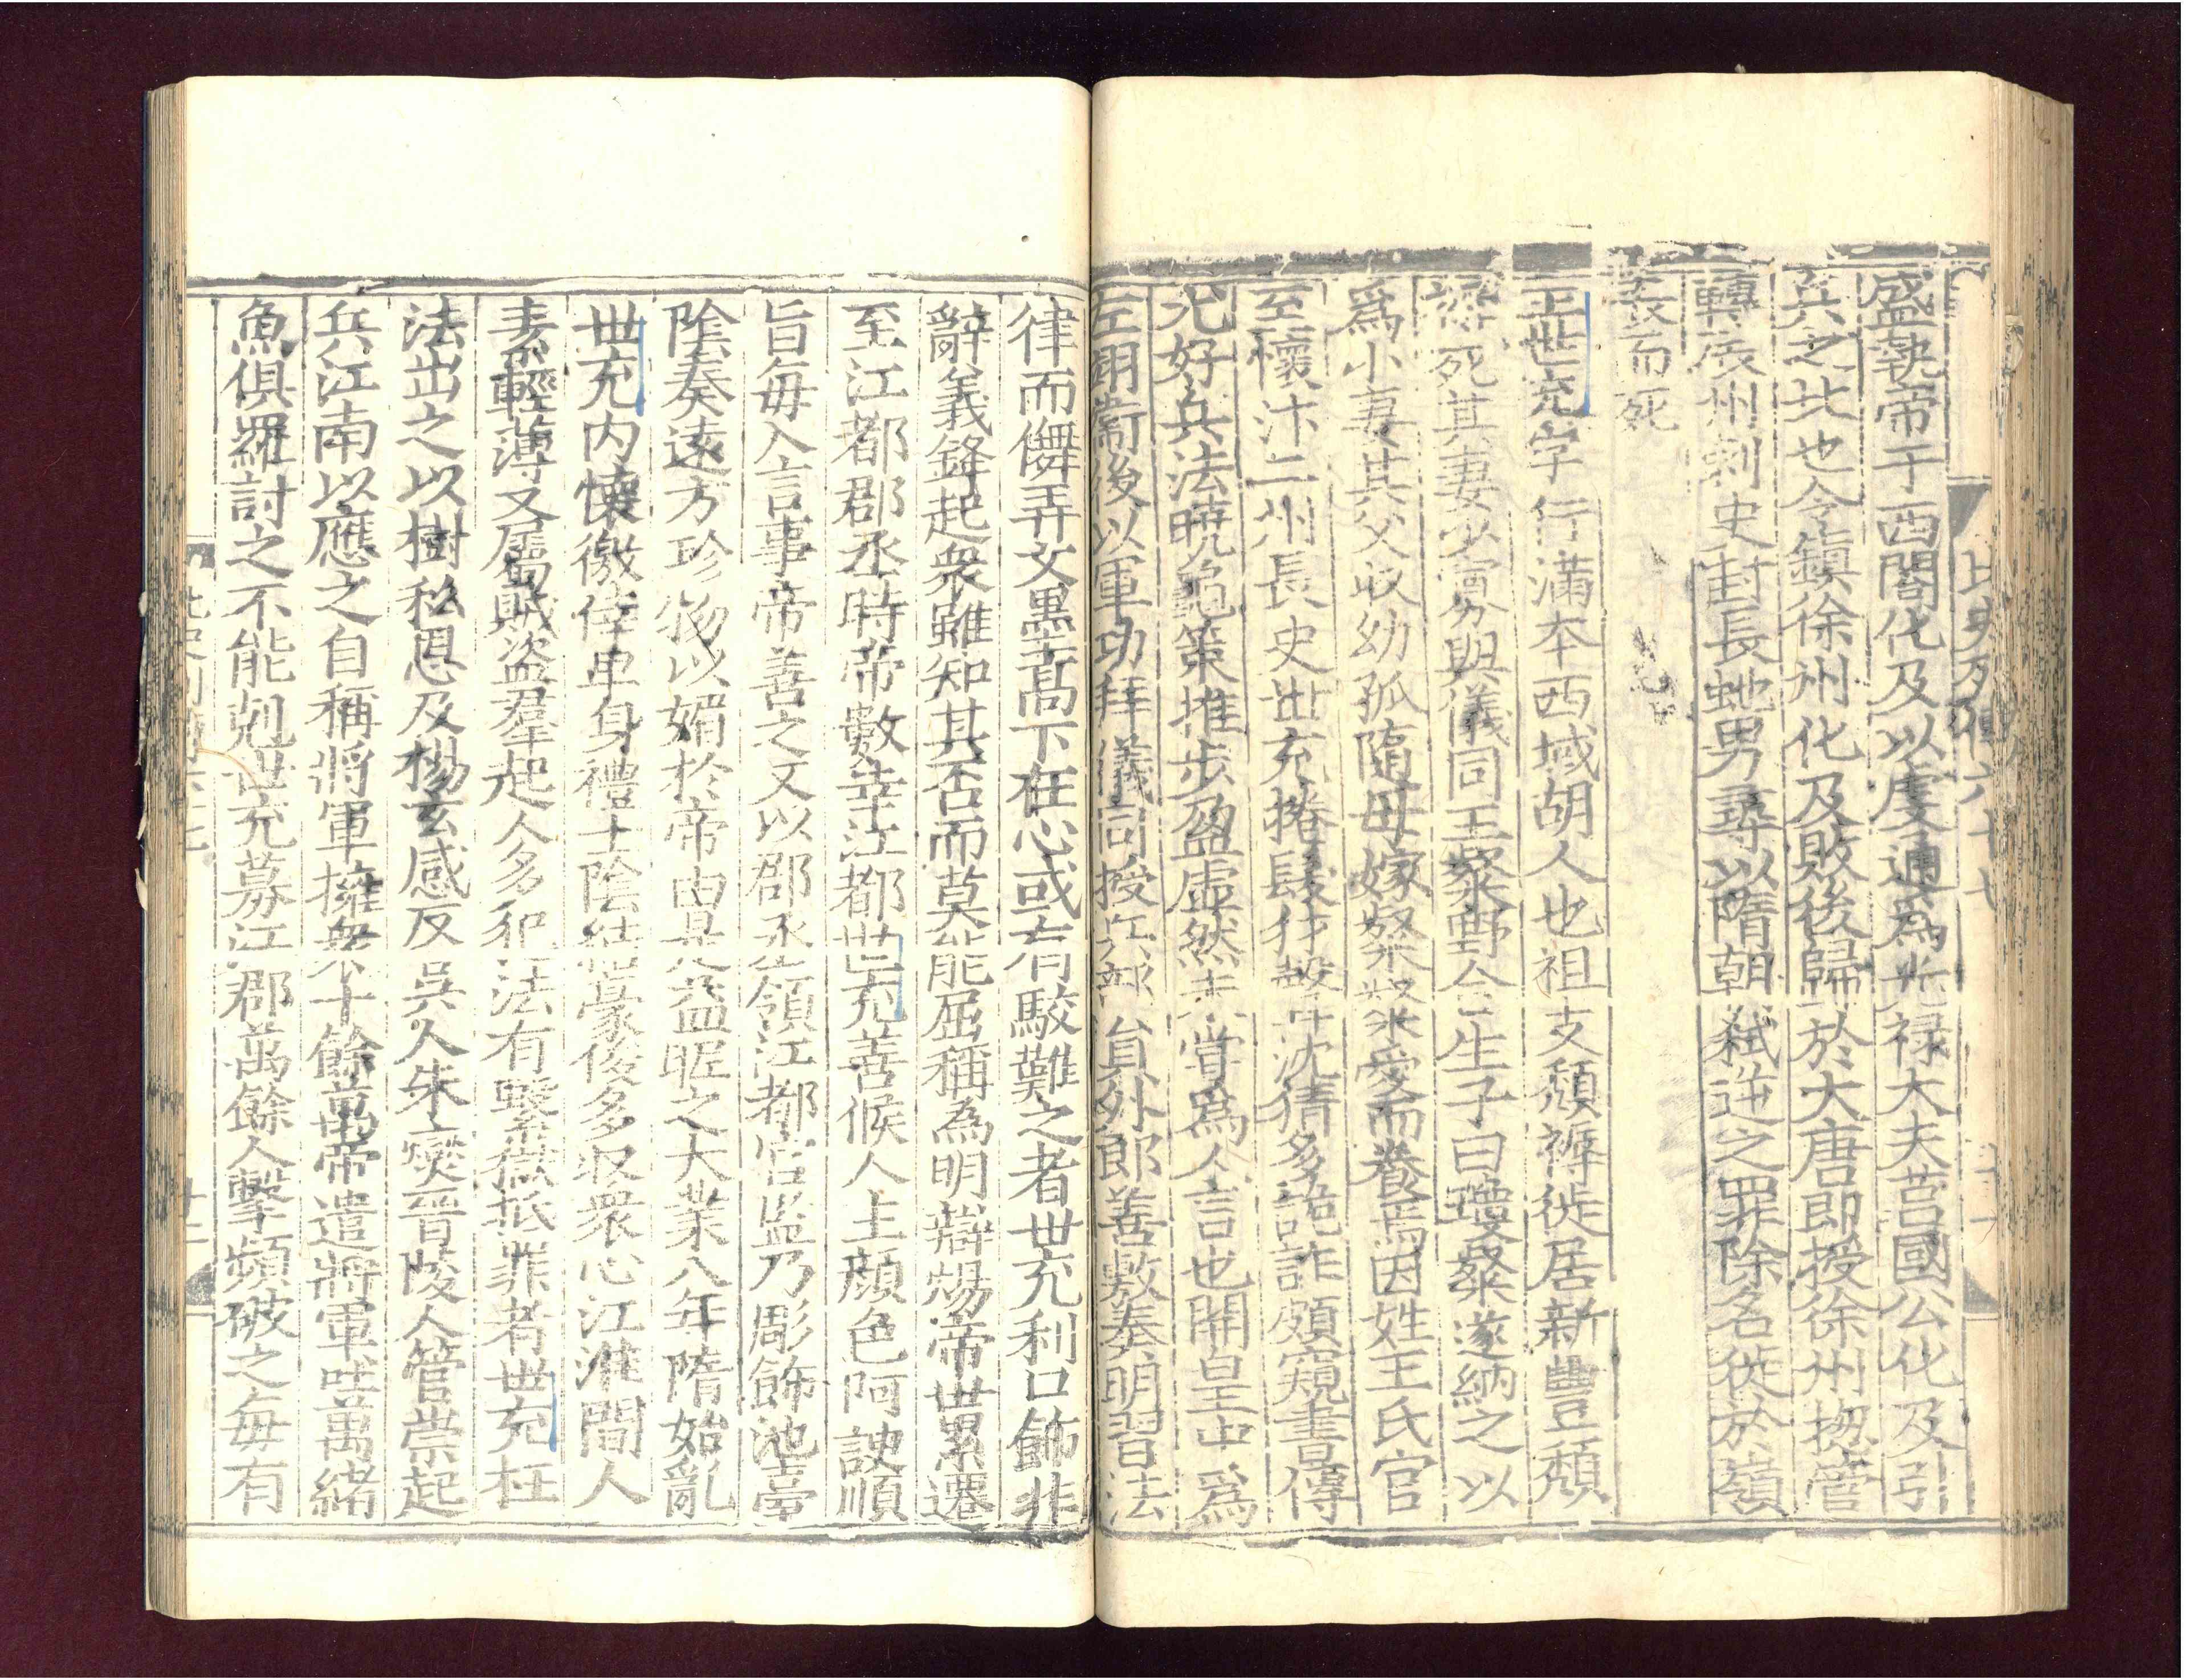 北史列傳六十七
盛執帝于西閤化及以虔通爲光禄大夫莒國公化及引
兵之北也令鎮徐州化及敗後歸於大唐即授徐州揔管
轉辰州刺史封長虵男尋以隋朝弑逆之罪除名徙於嶺
表而死
王世充字行滿本西域胡人也祖支頽褥徙居新豐頽
褥死其妻少寡與儀同王粲野合生子曰瓊粲遂納之以
爲小妻其父收幼孤隨母嫁粲粲愛而養焉因姓王氏官
至懷汴二州長史世充捲髮豺聲沈猜多詭詐頗窺書傳
尤好兵法曉龜策推步盈虛然未嘗爲人言也開皇中爲
左翊衞後以軍功拜儀同授兵部員外郎善敷奏明習法
律而儛弄文墨高下在心或有駮難之者世充利口飾非
辭義鋒起衆雖知其否而莫能屈稱為明辯煬帝世累遷
至江都郡丞時帝數幸江都世充善候人主顔色阿諛順
旨毎入言事帝善之又以郡丞領江都宮監乃彫飾池臺
陰奏遠方珍物以媚於帝由是益昵之大業八年隋始亂
世充内懷徼倖卑身禮士陰結豪俊多収衆心江淮間人
素輕薄又屬賊盜羣起人多犯法有繫獄抵罪者世充枉
法出之以樹私恩及楊玄感反吳人朱燮晉陵人管崇起
兵江南以應之自稱將軍擁衆十餘萬帝遣將軍吐萬緒
魚俱羅討之不能剋世充募江郡萬餘人擊頻破之毎有